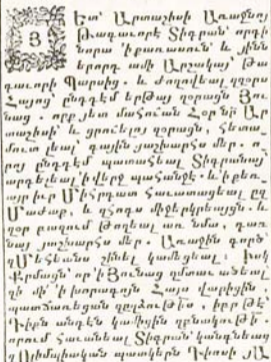 Յետ՝ Արտաշիսի Առաջնոյ
Թագաւորէ Տիգրան՝ որդի
նորա ՚ի քառասուն և յինն
երորդ ամի Արշակայ՝ Թա
գաւորի Պարսից. և ժողովեալ զզօրս
Հայոց՝ ընդդէմ երթայ զօրացն Յու
նաց. որք յետ մահուան Հօրն իւր Ար
տաշիսի՝ և ցրուելոյ զօրացն, հետա
մուտ լեալ՝ գային յաշխարհս մեր. ո
րոց ընդդէմ պատահեալ Տիգրանայ՝
արգելեալ ՚ի վերջ պահանջէ. և ՚ի քեռ
այր իւր Միհրդատ հաւատացեալ զք
Մաժաք, և զհողս միջերկրեայցն. և
զօր բազում թողեալ առ նմա, դառ
նայ յաշխարհս մեր. Առաջին գործ
զՄեհեանս շինել կամեցեալ: Իսկ
Քրմացն՝ որ ՚ի Յունաց զմտաւ ածեալ
զի մի՛ ՚ի խորագոյնս Հայս վարիցին,
պատճառեցան զըղձութիւնս, իբր թէ
Դիքն անդէն կամիցին զբնակութիւն.
որում հաւանեալ Տիգրան՝ կանգնեաց
զՈլիմպիական պատկերն Դիոսի յԱ